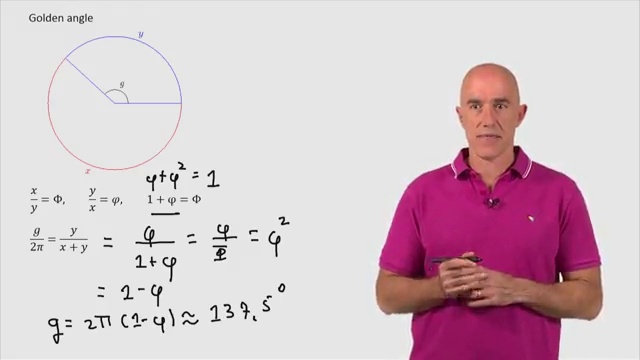 Golden angle
y
g
x
φ+φ² = 1
x/y = Φ, y/x = φ, 1 + φ = Φ
g/2π = y/(x + y) = φ/(1+φ) = φ/Φ = φ²
= 1-φ
g = 2π(1-φ) ≈ 137.5°